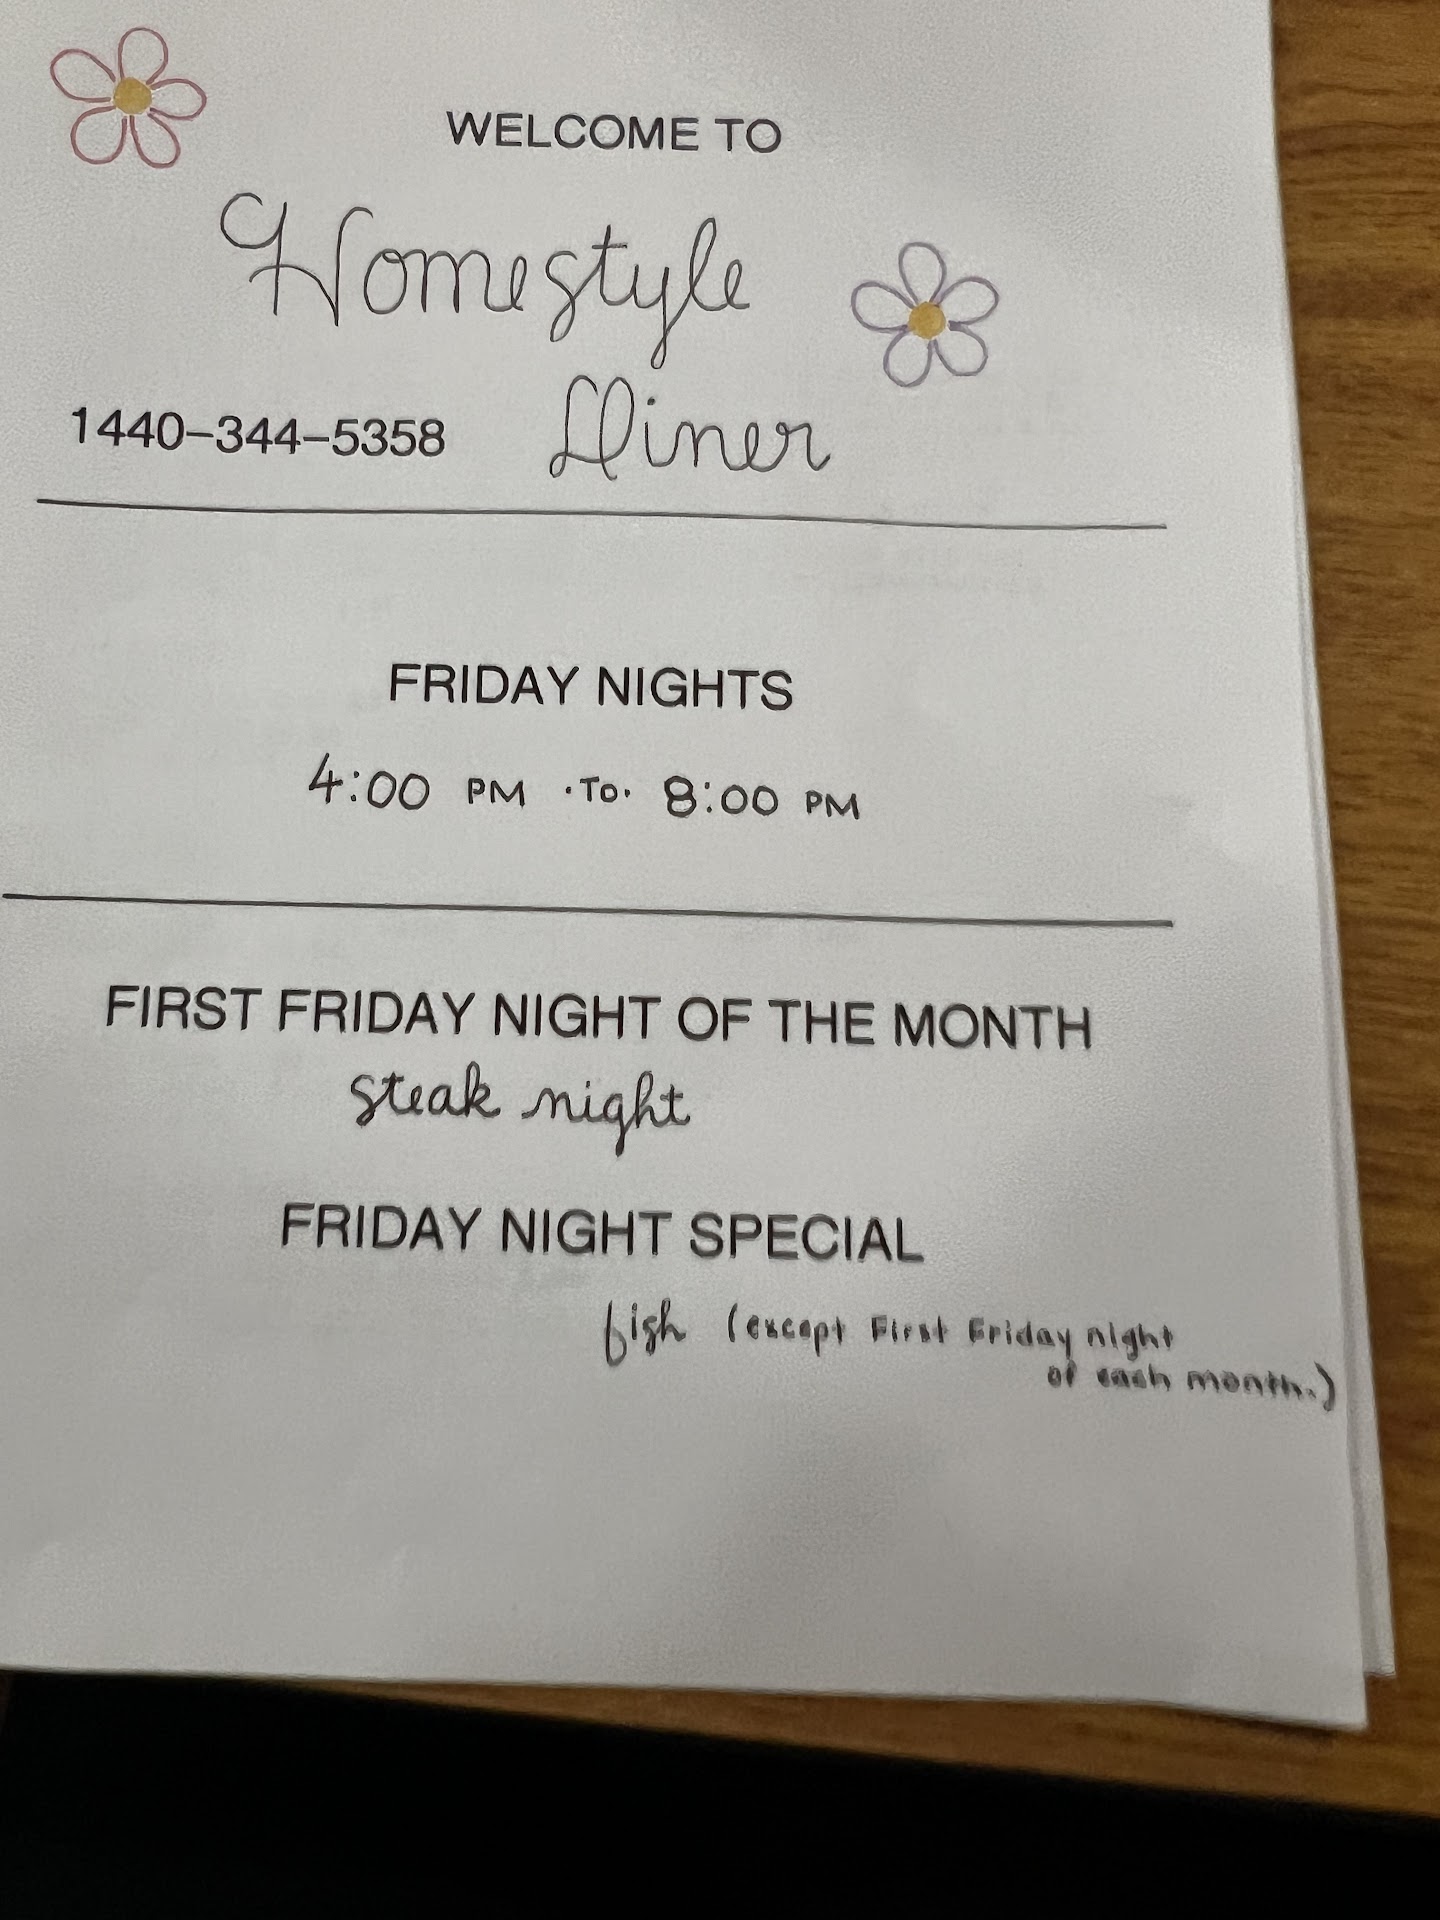 WELCOME TO
Homestyle
Diner
1440-344-5358
FRIDAY NIGHTS
4:00 PM ·TO· 8:00 PM
FIRST FRIDAY NIGHT OF THE MONTH
steak night
FRIDAY NIGHT SPECIAL
fish (except First Friday night
of each month.)